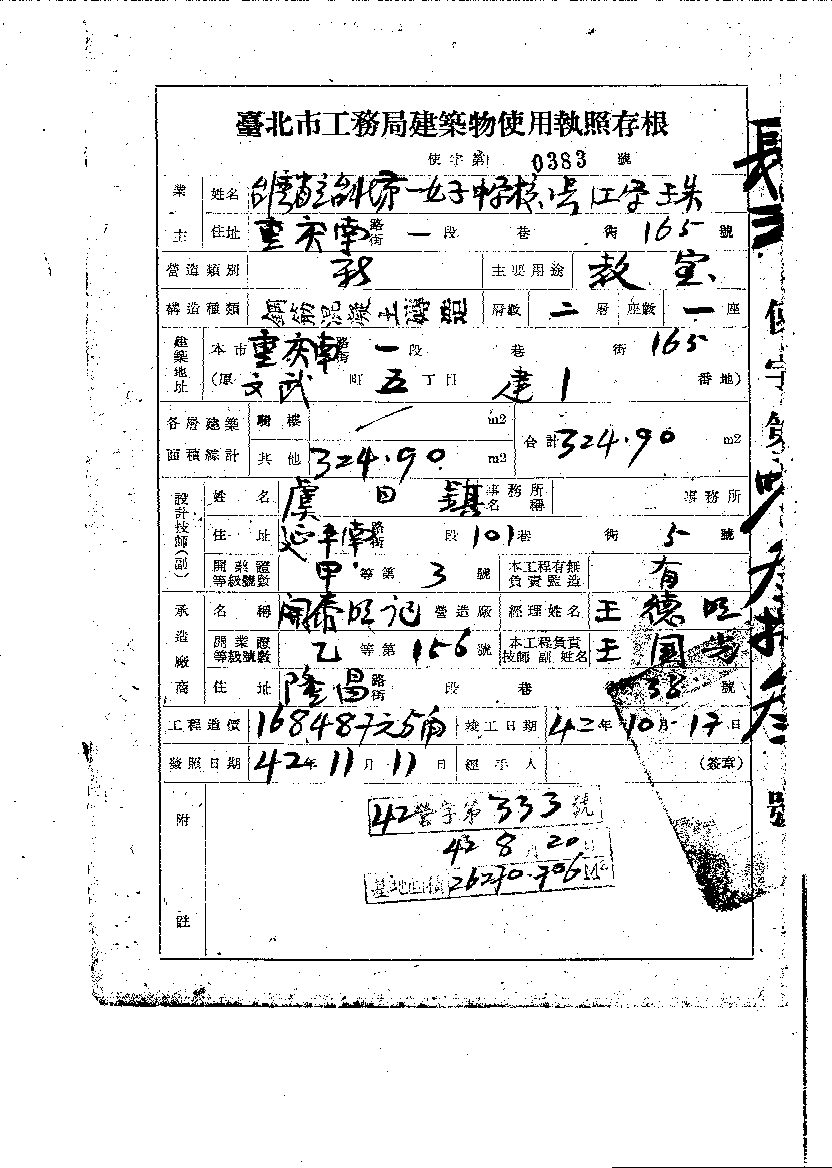 臺北市工務局建築物使用執照存根
使字第 0383 號
業主 姓名 台灣省立台北第一女子中學校長江學珠
住址 重慶南路街 一段 巷 街 165 號
營造類別 新 主要用途 教室
構造種類 鋼筋混凝土磚造 層數 二層 座數 一座
建築地址 本市 重慶南路街 一段 巷 街 165
(原 文武 町 五 丁目 建1 番地)
各層建築面積總計 騎樓 m2 合計 324.90 m2
其他 324.90 m2
設計技師(副) 姓名 虞曰鎮 事務所名稱 事務所
住址 延平南路街 段 101 巷 街 5 號
開業證等級號數 甲 等第 3 號 本工程有無負責監造 有
承造廠商 名稱 開泰旺記 營造廠 經理姓名 王德旺
開業證等級號數 乙 等第 156 號 本工程負責技師副姓名 王國
住址 隆昌路街 段 巷 38 號
工程造價 168487元5角 竣工日期 42年10月17日
發照日期 42年11月11日 經手人 (簽章)
附註
42營字第333號
42 8月20日
基地面積 26270.706M2
使字第
號